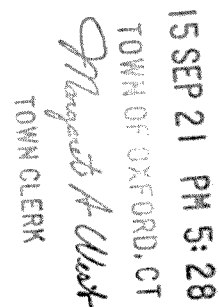 15 SEP 21 PM 5:28
TOWN OF OXFORD, CT
Margaret A West
TOWN CLERK